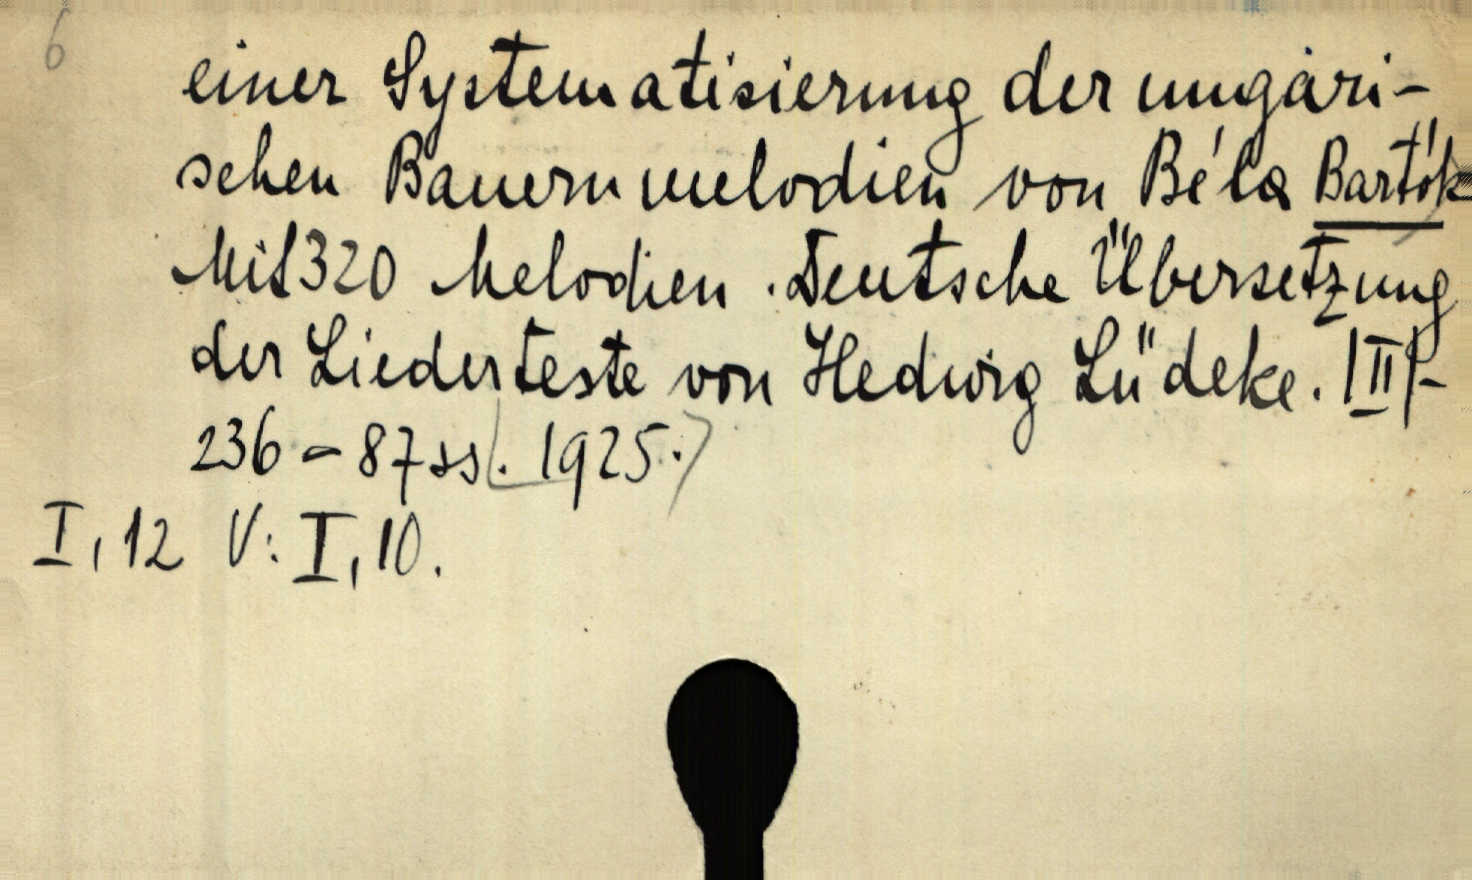 6
einer Systematisierung der ungari-
schen Bauernmelodien von Béla Bartók
Mit 320 Melodien. Deutsche Übersetzung
der Liederteste von Hedwig Lüdeke. |II|-
236-87 ss. 1925.
I, 12 V: I, 10.